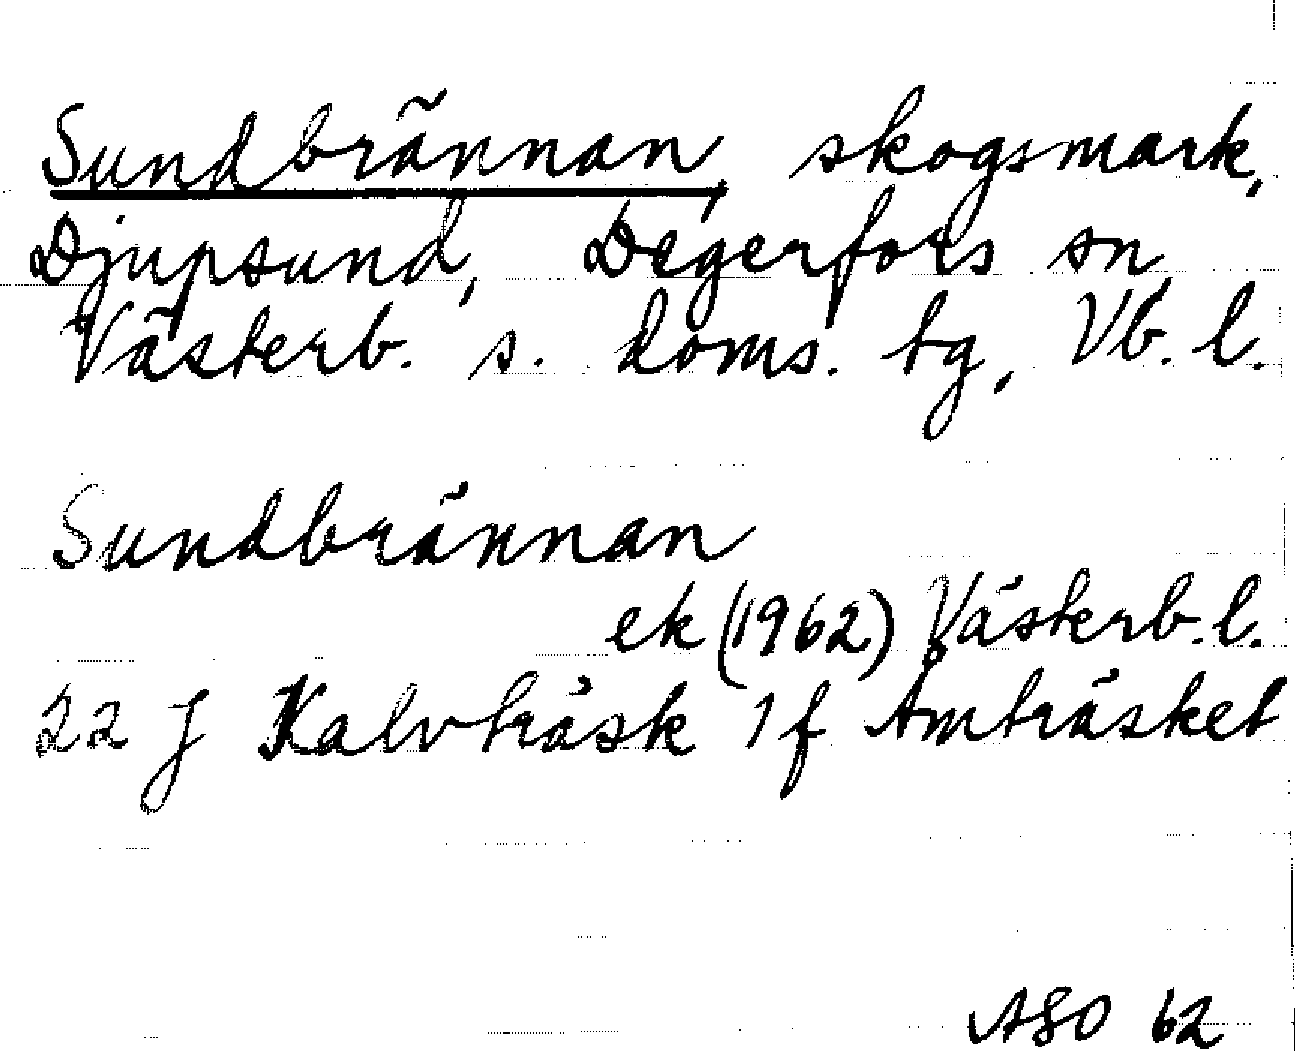 Sundbrännan, skogsmark,
Djupsund, Degerfors sn
Västerb. s. doms. tg, Vb. l.
Sundbrännan
ek (1962) Västerb. l.
22 J Kalvträsk 1 f Åmträsket
ASO 62